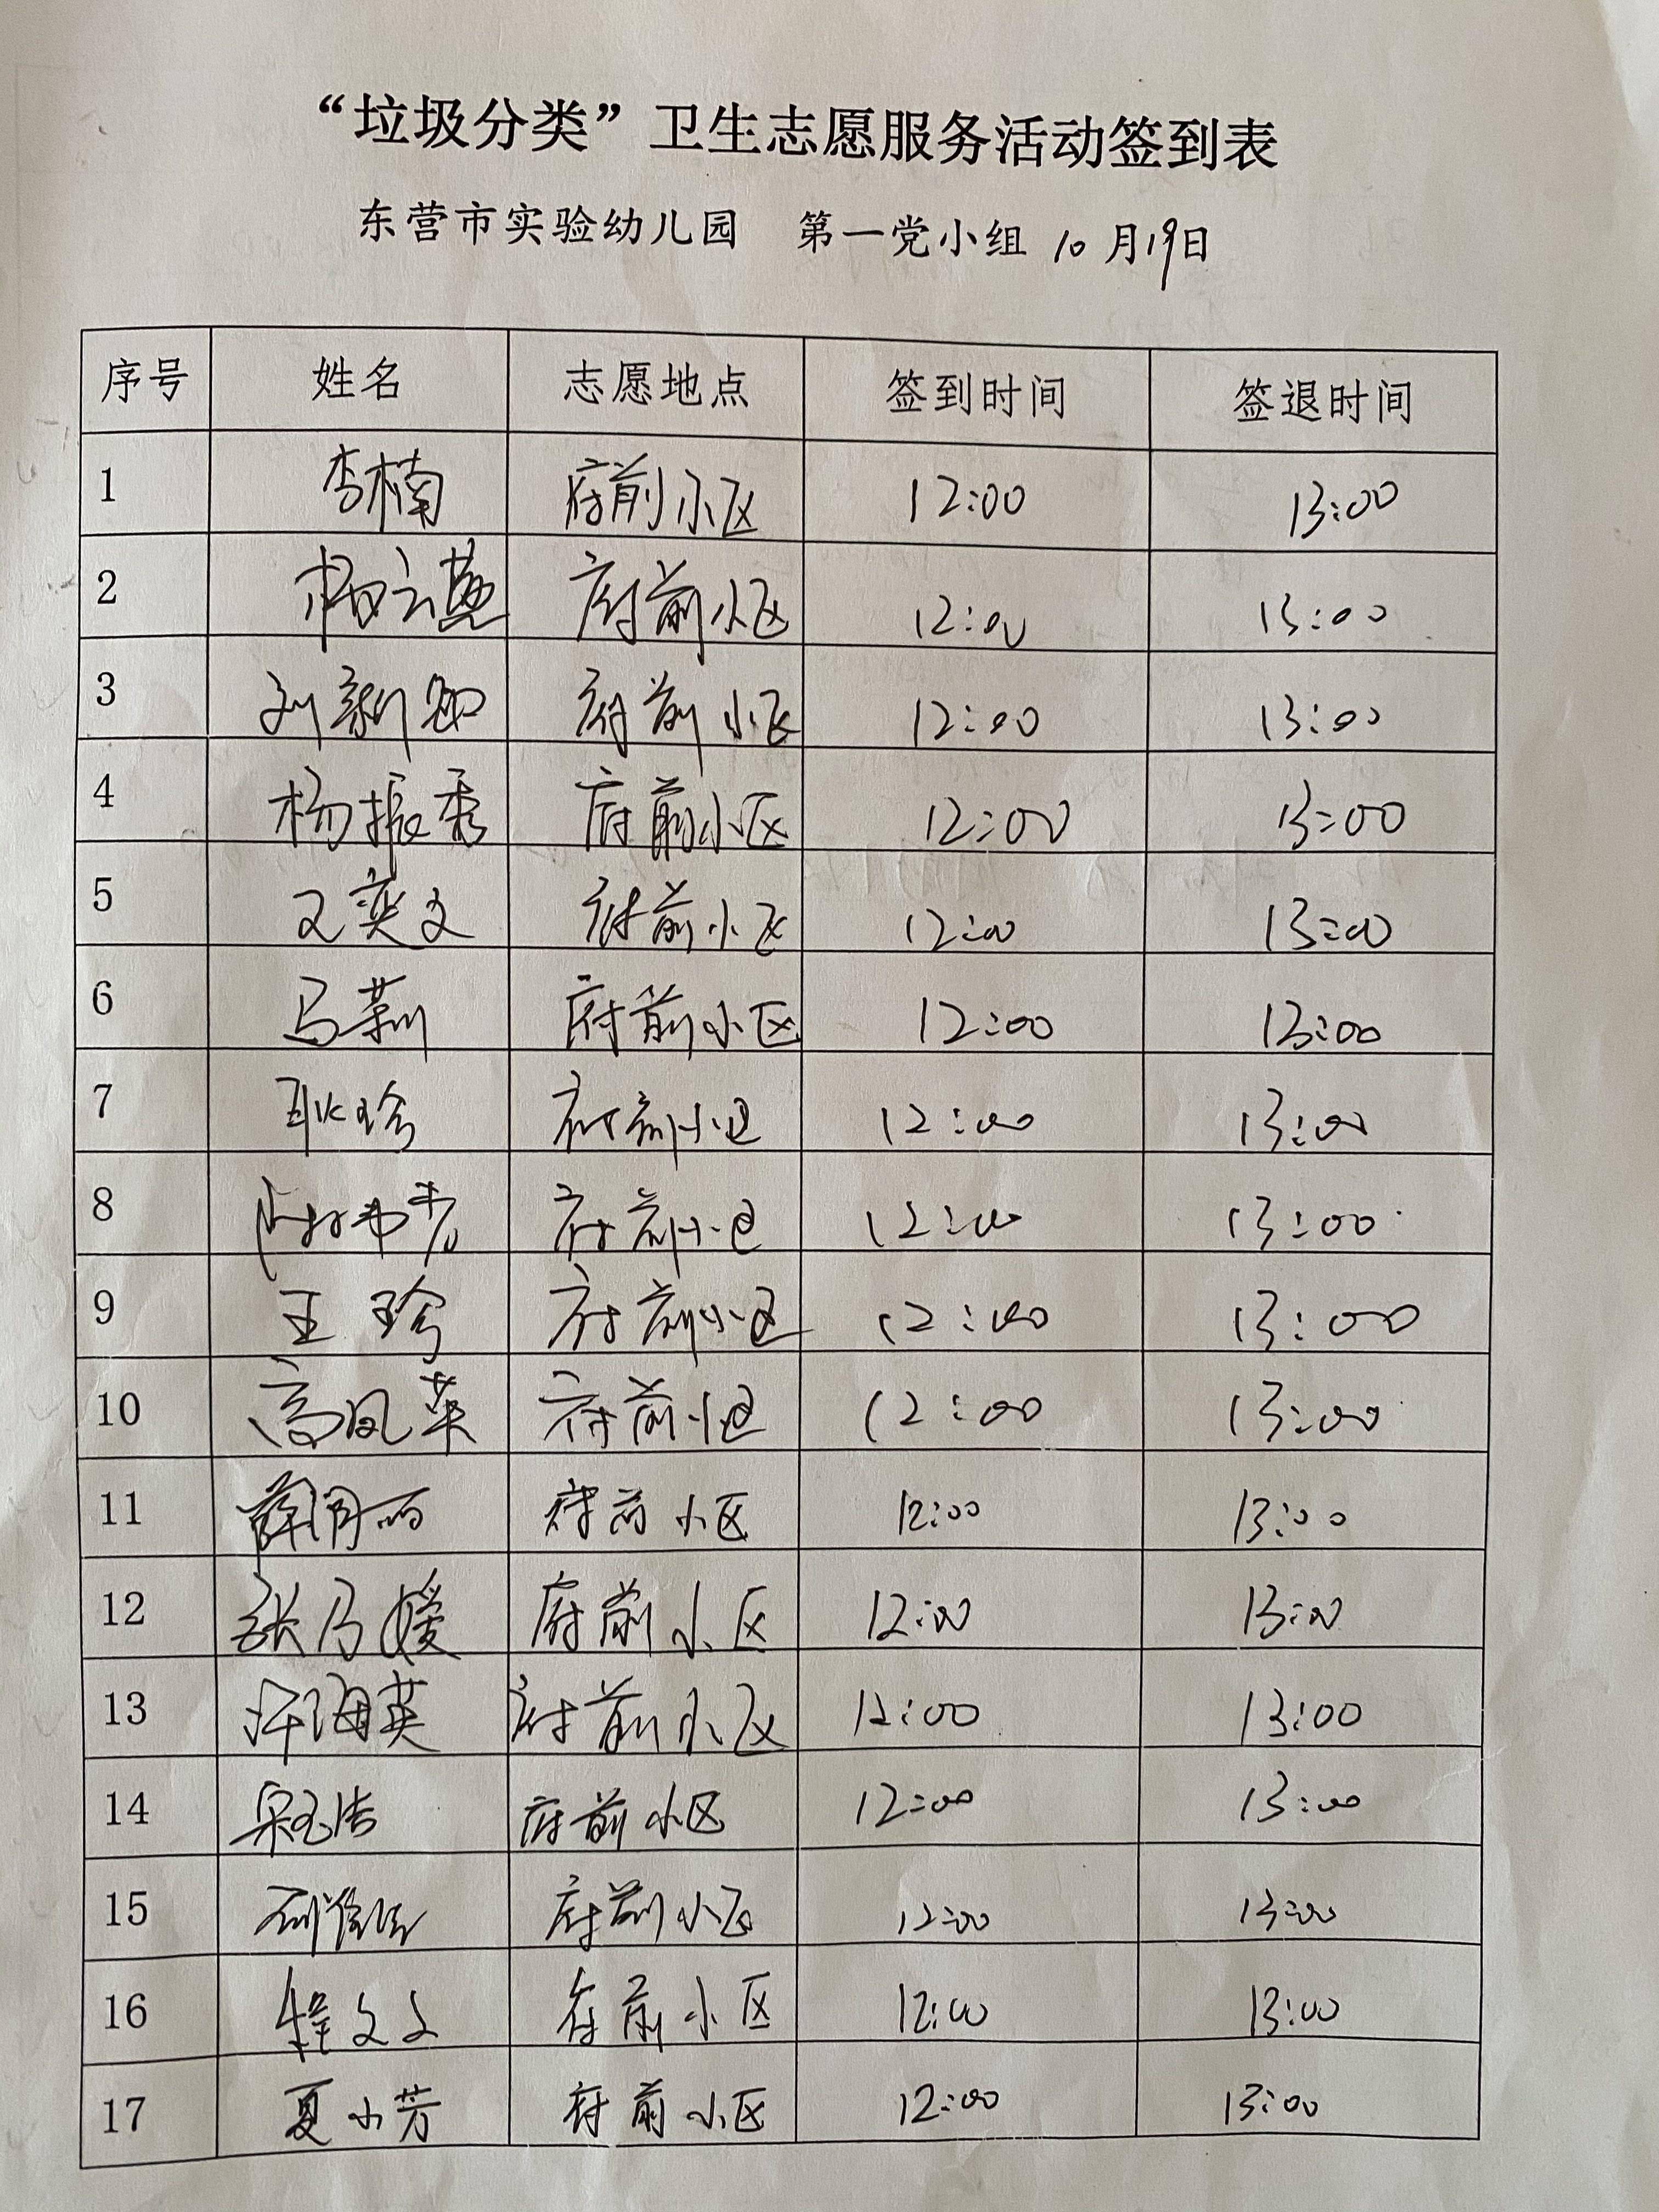 “垃圾分类”卫生志愿服务活动签到表
东营市实验幼儿园 第一党小组 10月19日
序号 姓名 志愿地点 签到时间 签退时间
1 李楠 府前小区 12:00 13:00
2 杨云燕 府前小区 12:00 13:00
3 刘新 府前小区 12:00 13:00
4 杨振秀 府前小区 12:00 13:00
5 文奕文 府前小区 12:00 13:00
6 马莉 府前小区 12:00 13:00
7 耿珍 府前小区 12:00 13:00
8 府前小区 12:00 13:00
9 王珍 府前小区 12:00 13:00
10 高凤英 府前小区 12:00 13:00
11 薛月丽 府前小区 12:00 13:00
12 张乃媛 府前小区 12:00 13:00
13 许海英 府前小区 12:00 13:00
14 府前小区 12:00 13:00
15 府前小区 12:00 13:00
16 程文文 府前小区 12:00 13:00
17 夏小芳 府前小区 12:00 13:00